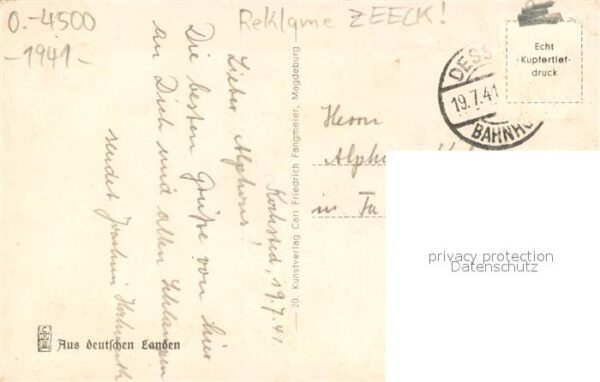 O.-4500
-1941-
Reklame ZEECK!
Kochsted, 19.7.41
Lieber Alphons!
Die besten Grüße von hier
an Dich und allen
sendet Joachim
Aus deutschen Landen
20. Kunstverlag Carl Friedrich Fangmeier, Magdeburg
DESS
19.7.41
BAHNHO
Echt
Kupfertief-
druck
Herrn
Alpho
in
privacy protection
Datenschutz